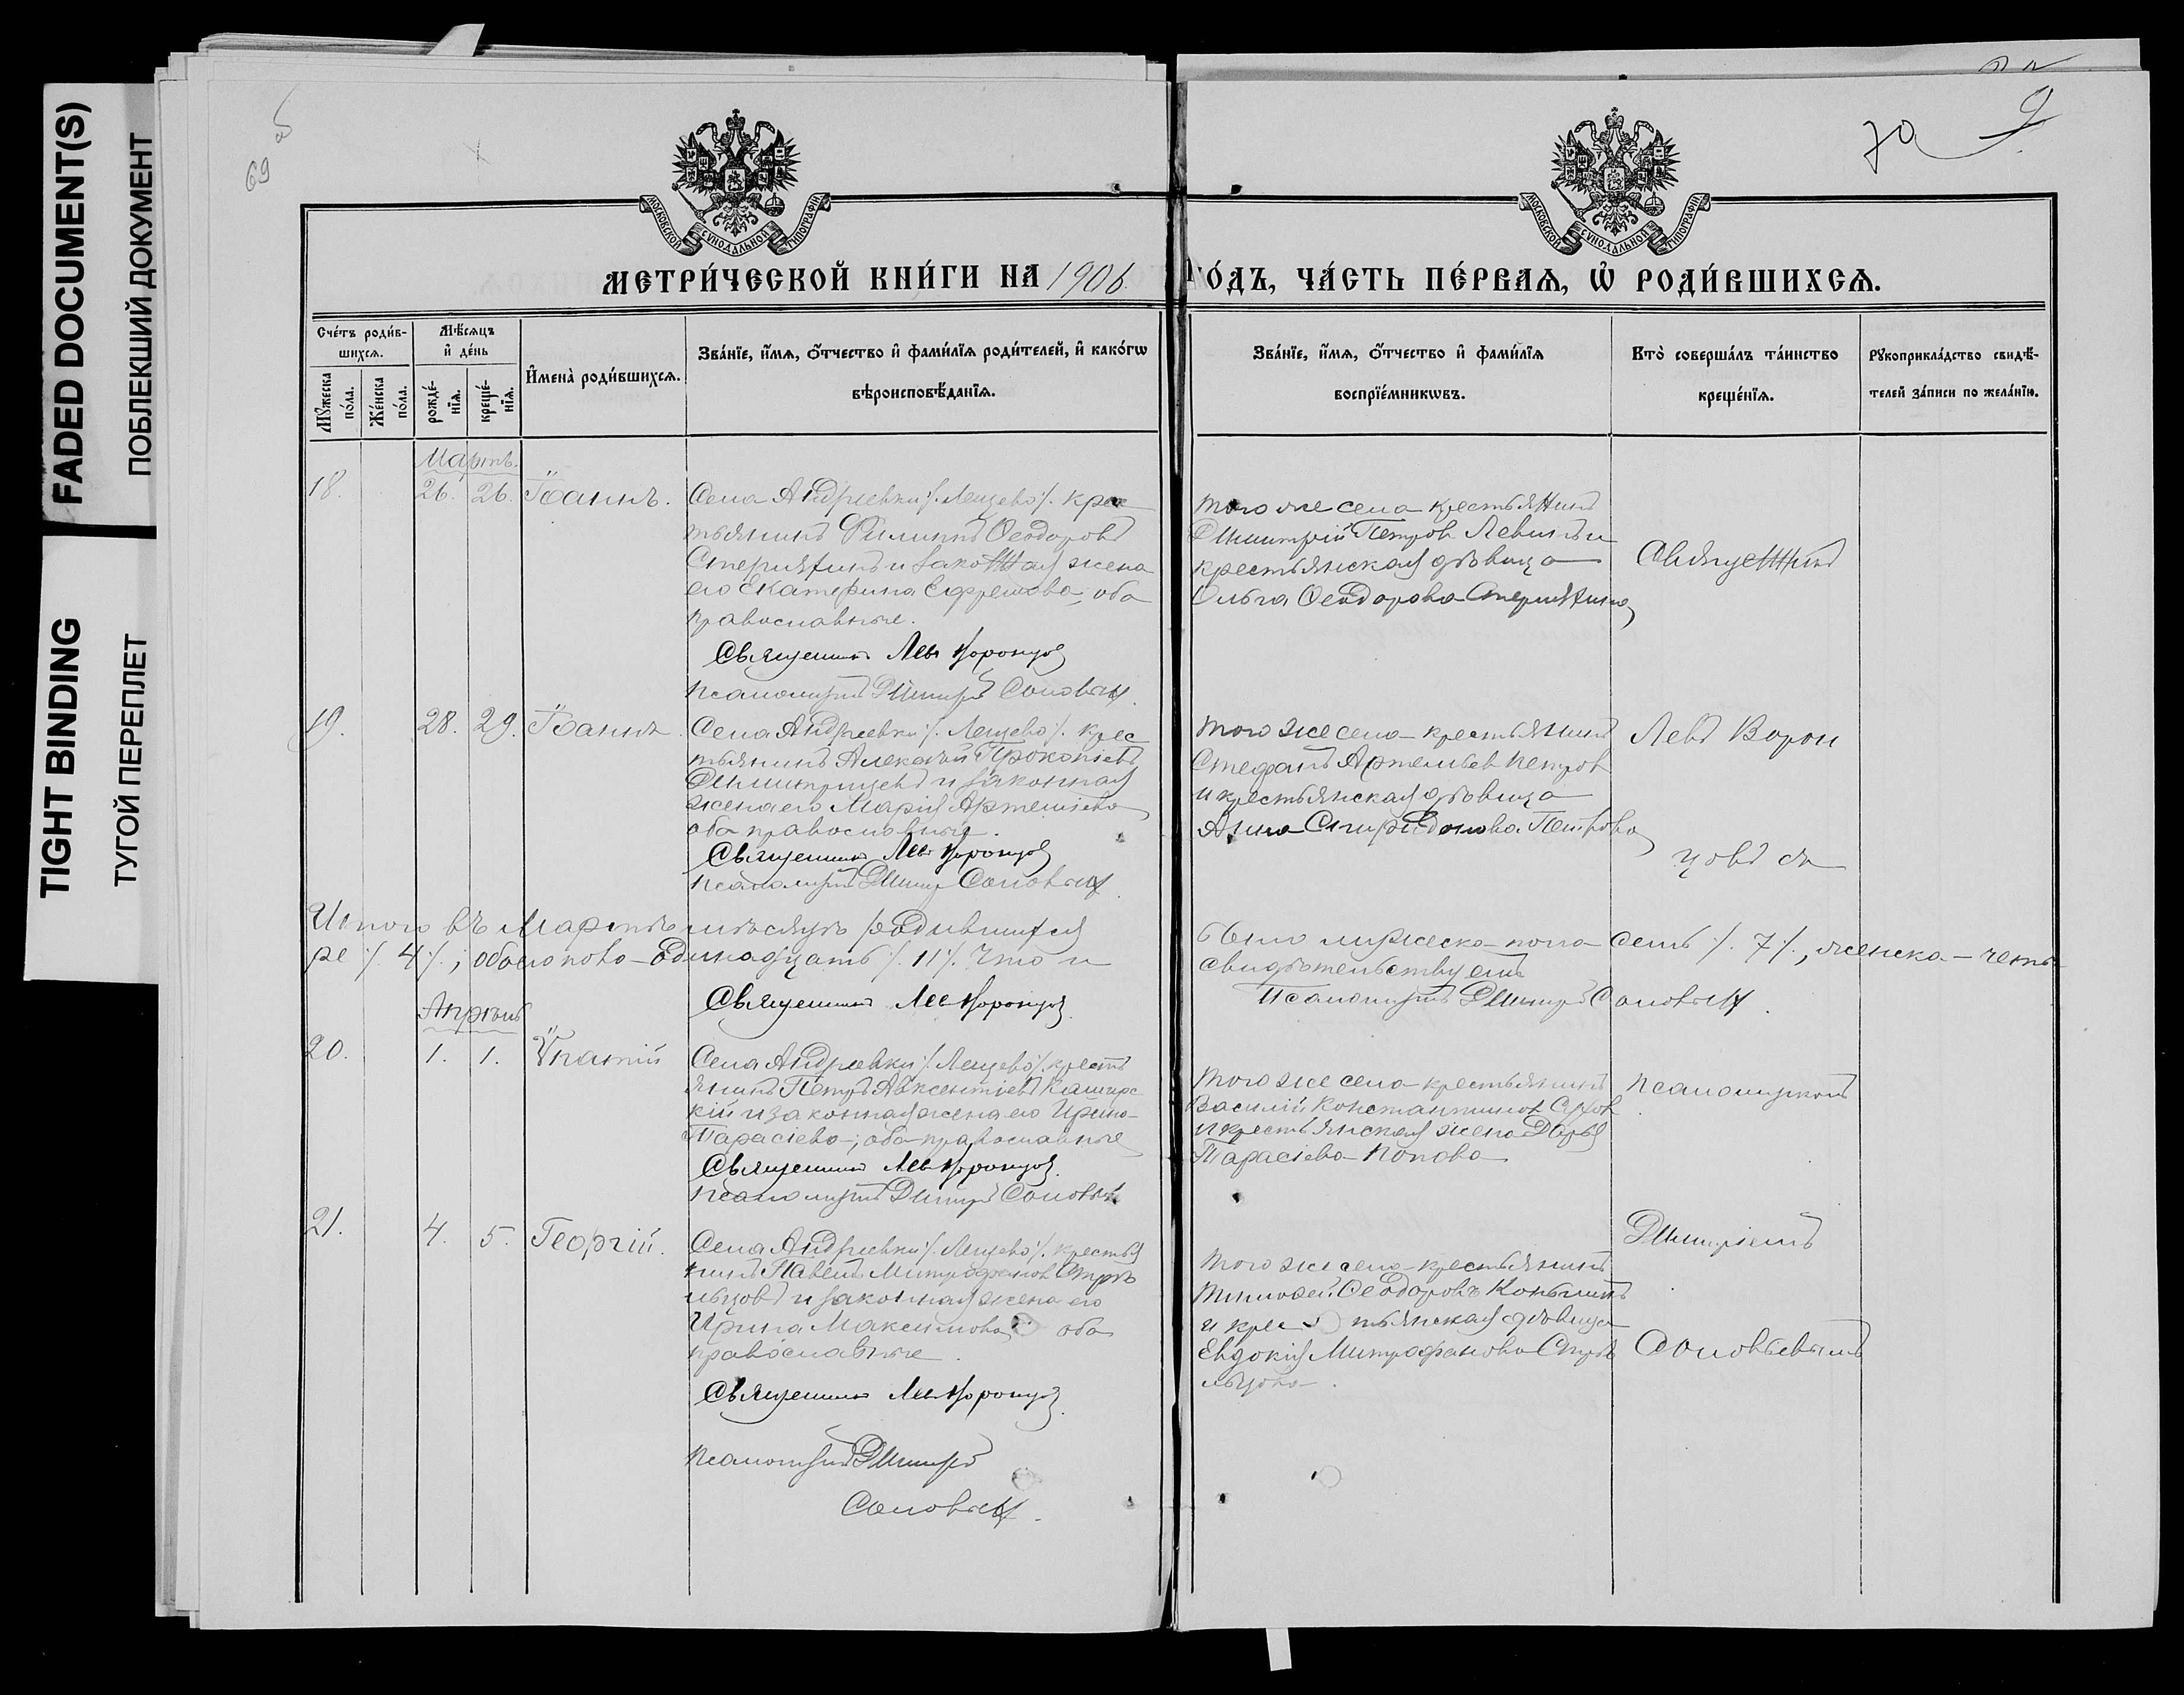 FADED DOCUMENT(S)
ПОБЛЕКШИЙ ДОКУМЕНТ
TIGHT BINDING
ТУГОЙ ПЕРЕПЛЕТ
69 об
70 9
МОСКОВСКОЙ СѴНОДАЛЬНОЙ ТИПОГРАФІИ
МОСКОВСКОЙ СѴНОДАЛЬНОЙ ТИПОГРАФІИ
МЕТРИ́ЧЕСКОЙ КНИ́ГИ НА 1906 ГО́ДЪ, ЧА́СТЬ ПЕ́РВАЯ, Ѡ҆ РОДИ́ВШИХСѦ.
Сче́тъ роди́в-
шихсѧ.
Мꙋ́жеска
по́ла.
Же́нска
по́ла.
Мѣ́сѧцъ
и҆ де́нь
рожде́-
нїѧ.
креще́-
нїѧ.
И҆мена̀ роди́вшихсѧ.
Зва́нїе, и҆́мѧ, ѻ҆́тчество и҆ фами́лїѧ роди́телей, и҆ како́гѡ
вѣроисповѣ́данїѧ.
Зва́нїе, и҆́мѧ, ѻ҆́тчество и҆ фами́лїѧ
воспрїе́мникѡвъ.
Кто̀ соверша́лъ та́инство
креще́нїѧ.
Рꙋкоприкла́дство свидѣ́-
телей за́писи по жела́нїю.
Мартъ.
18. 26. 26. Іоаннъ.
Села Андреевки /. Лещево /. крес
тьянинъ Филиппъ Ѳеодоровъ
Стерияхинъ и законная жена
его Екатерина Ефремова, оба
православные.
Священникъ Левъ Воронцовъ
Псаломщикъ Дмитрій Соловьевъ.
того же села крестьянинъ
Димитрій Петров Левинъ и
крестьянская дѣвица
Ольга Ѳеодорова
Священникъ
19. 28. 29. Іоаннъ.
Села Андреевки /. Лещево /. крес
тьянинъ Алексѣй Прокопіевъ
Димитріевъ и законная
жена его Марія Артеміева
оба православные.
Священникъ Левъ Воронцовъ
Псаломщикъ Дмитр Соловьевъ.
того же села крестьянинъ
Стефанъ Артемьев Петров
и крестьянская дѣвица
Анна Спиридонова Петрова
Левъ Ворон
цовъ съ
Итого въ Мартѣ мѣсяцѣ родившихся
было мужеска пола семь /. 7 /., женска – четы
ре /. 4 /.; обоего пола одинадцать /. 11 /. Что и
свидѣтельствуемъ
Священникъ Левъ Воронцовъ.
Псаломщикъ Дмитрій Соловьевъ.
Апрѣль
20. 1. 1. Ѵпатій
Села Андреевки /. Лещево /. кресть
янинъ Петръ Авксентіевъ Каширс
кій и законная жена его Ирина
Тарасіева; оба православные
Священникъ Левъ Воронцовъ.
Псаломщикъ Дмитрій Соловьевъ
того же села крестьянинъ
Василій Константинов
и крестьянская жена Дарья
Тарасіева Попова
псаломщикомъ
21. 4. 5. Георгій.
Села Андреевки /. Лещево /. крестья
нинъ Павелъ Митрофанов Стрѣ
льцовъ и законная жена его
Ирина Максимова оба
православные.
Священникъ Левъ Воронцовъ.
Псаломщикъ Дмитрій
Соловьевъ.
того же села крестьянинъ
Тимоѳей Ѳеодоровъ Копытинъ
и крес тьянская дѣвица
Евдокія Митрофанова Стрѣ
льцова.
Дмитріемъ
Соловьевымъ